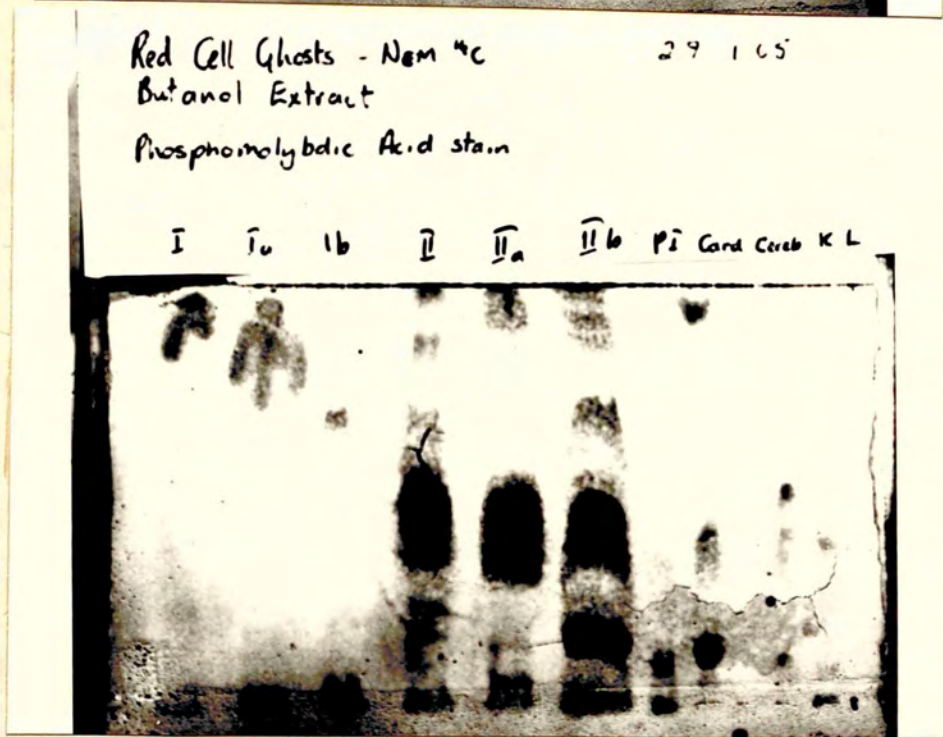 Red Cell Ghosts - NEM ¹⁴C 29 1 65
Butanol Extract
Phosphomolybdic Acid stain
I Ia Ib II IIa IIb PI Card Cereb K L